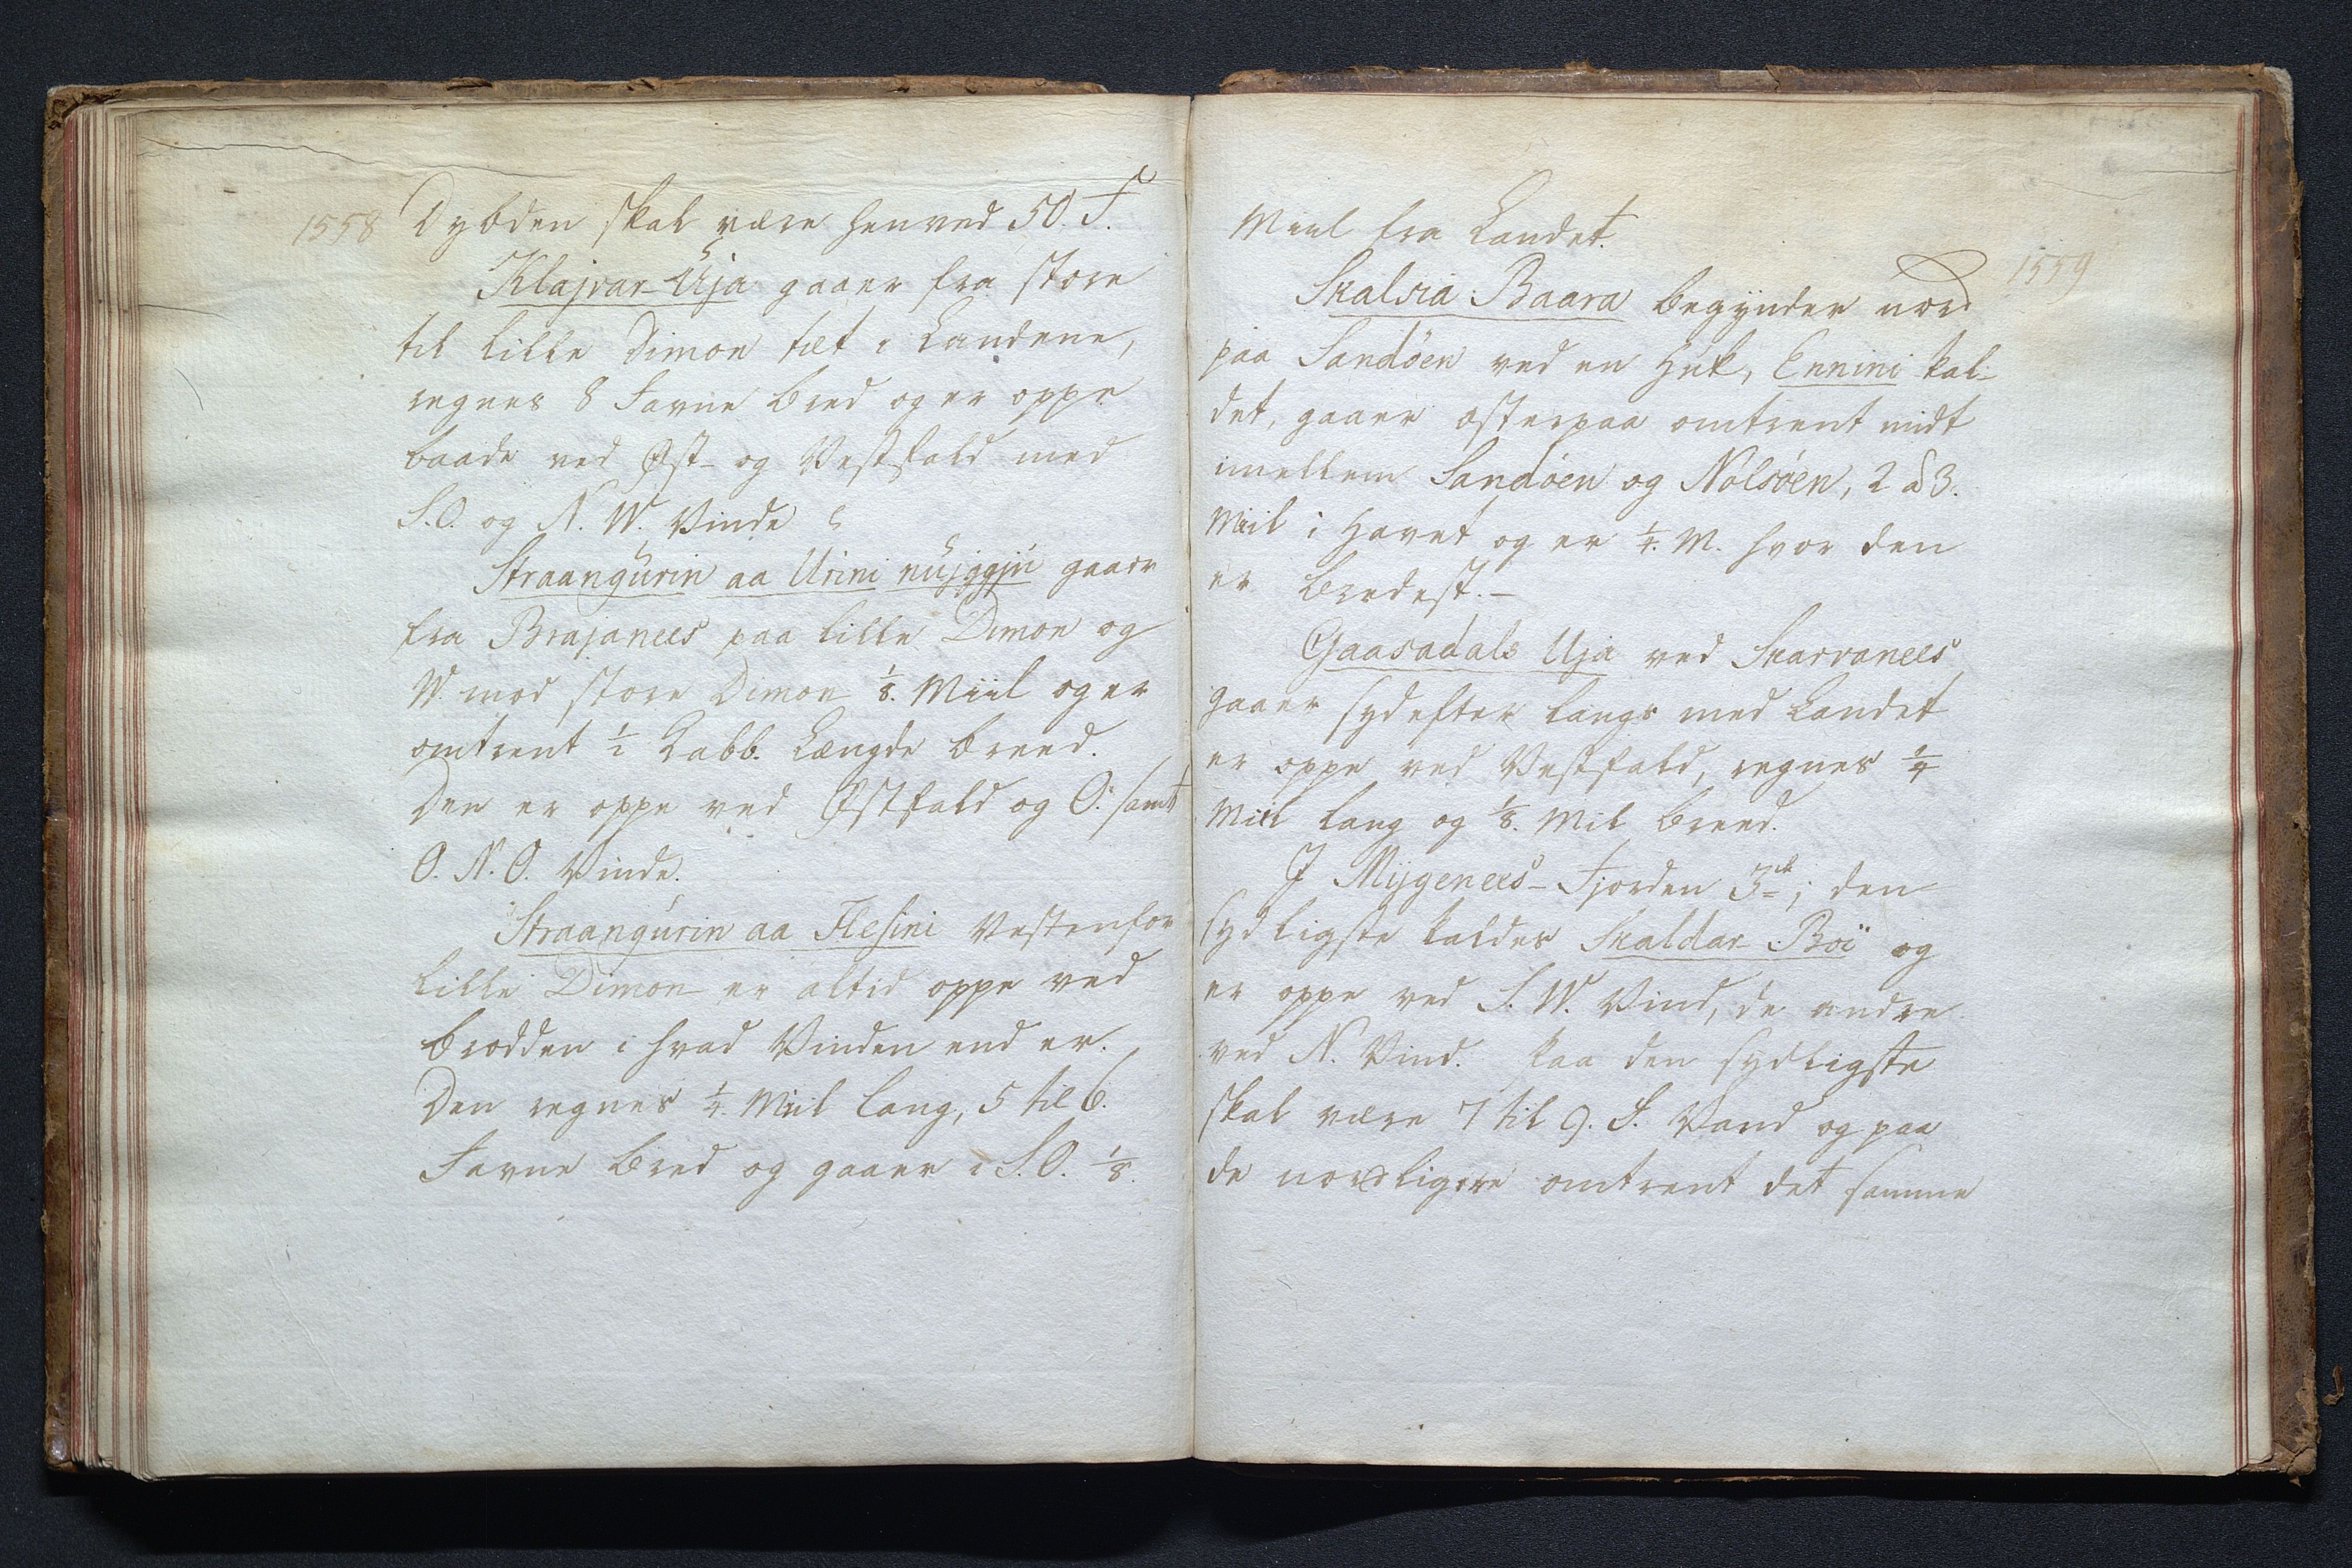 1558
Dybden skal være henved 50. F.
Klajvar-Uja gaaer fra store
til lille Dimon tæt i Landene,
regnes 8 Favne bred og er oppe
baade ved Øst- og Vestfald med
S.O. og N. W. Vinde
Straangúrin aa Urini nujggjú gaaer
fra Brajanees paa lille Dimon og
W. mod store Dimon 1/8. Miil og er
omtrent 1/2 Kabb. Længde breed.
Den er oppe ved Østfald og O. samt
O. N. O. Vinde.
Straangúrin aa Flesini Vestenfor
lille Dimon er altid oppe ved
brodden i hvad Vinden end er.
Den regnes 1/4. Miil lang, 5 til 6.
Favne bred og gaaer i S.O. 1/8.
Miil fra Landet.
1559
Skalsia Baara begynder nord
paa Sandöen ved en Huk, Ennini kal-
det, gaaer østerpaa omtrent midt
imellem Sandöen og Nolsöen, 2 a 3.
Miil i Havet og er 1/4. M. hvor den
er bredest.-
Gaasadals Uja ved Skarvanees
gaaer sydefter langs med Landet
er oppe ved Vestfald, regnes 1/4
Miil lang og 1/8. Mil breed.
I Mygenees-Fjorden 3de; den
sydligste kaldes Skaldar-Boi og
er oppe ved S. W. Vind, de andre
ved N. Vind. Paa den sydligste
skal være 7 til 9. F. Vand og paa
de nordligere omtrent det samme